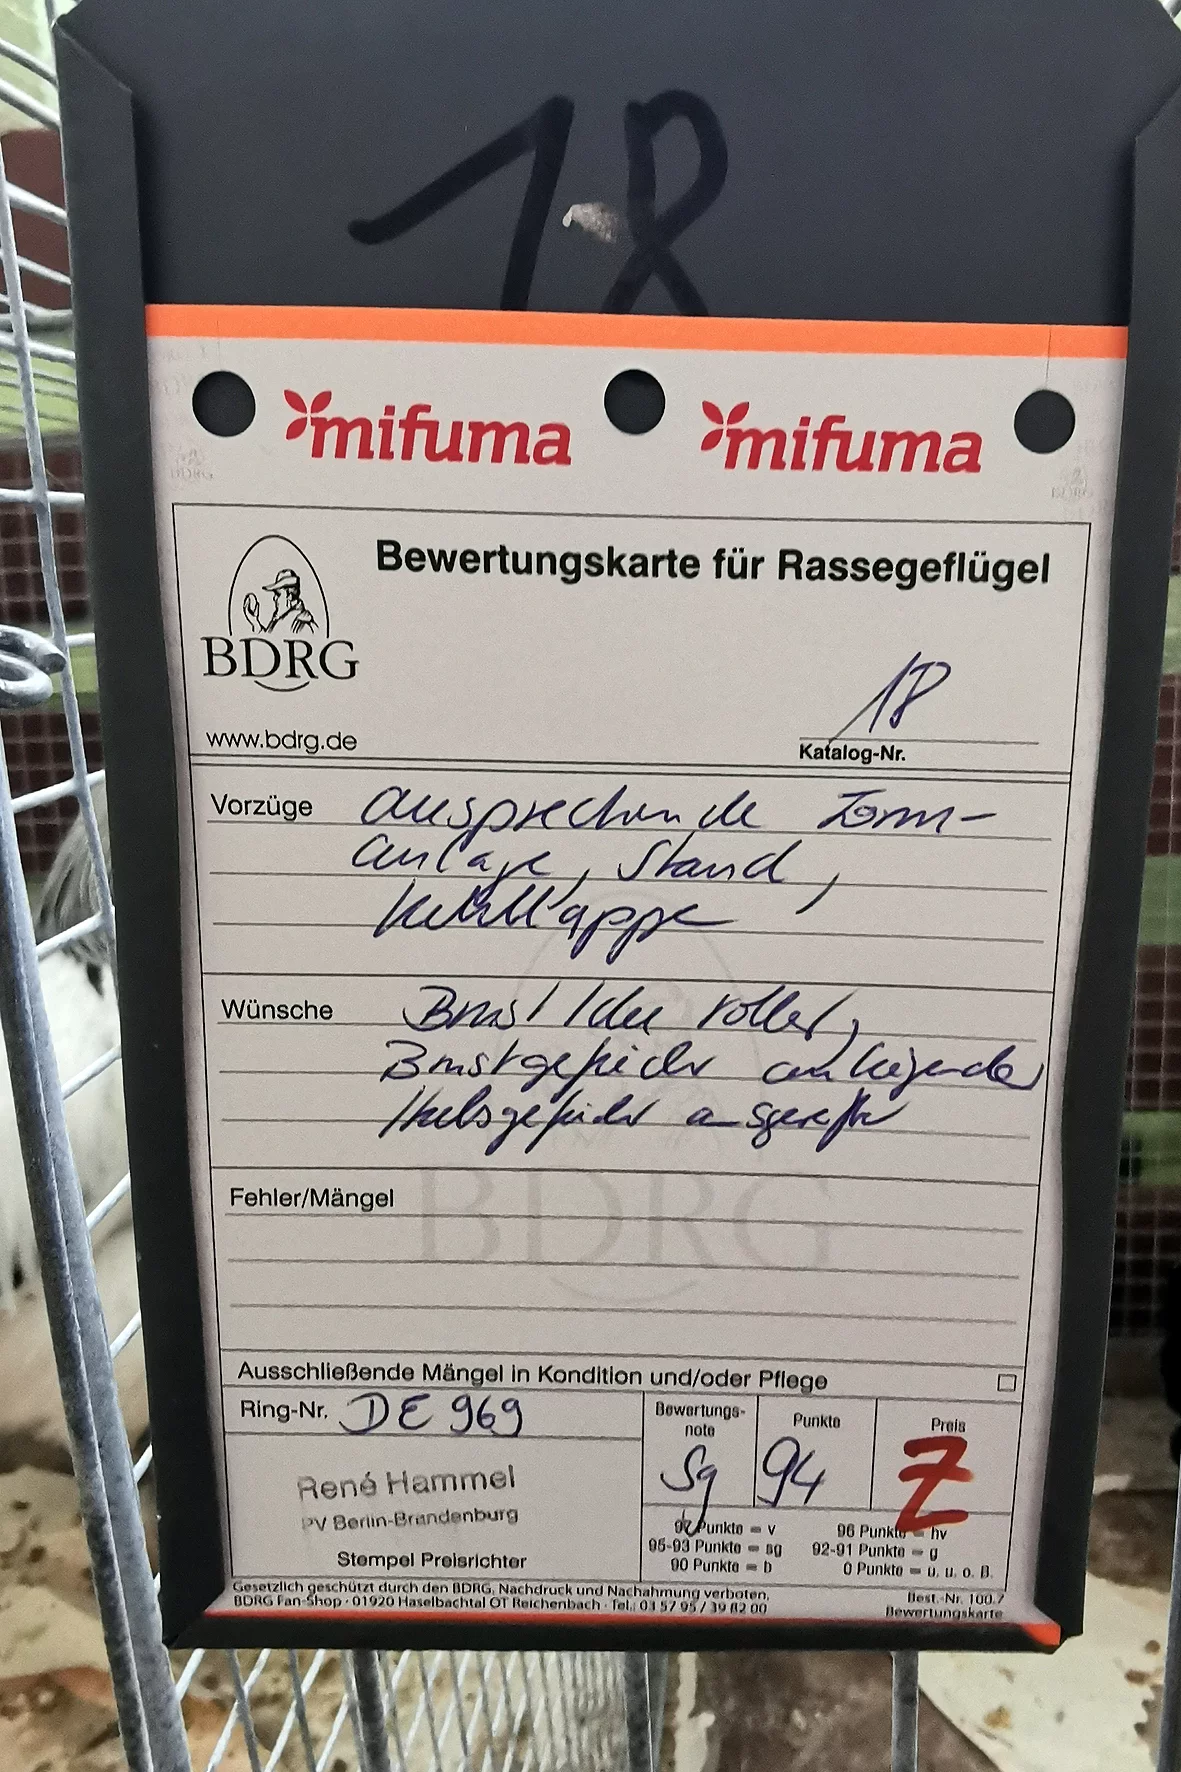 18
mifuma mifuma
Bewertungskarte für Rassegeflügel
BDRG
www.bdrg.de
18
Katalog-Nr.
Vorzüge ansprechende Form-
anlage, Stand,
Kehllappe
Wünsche Brustlinie voller,
Brustgefieder anliegender
Halsgefieder ausgereifter
BDRG
Fehler/Mängel
Ausschließende Mängel in Kondition und/oder Pflege
Ring-Nr. DE 969
Bewertungs-
note
Sg
Punkte
94
Preis
Z
René Hammel
PV Berlin-Brandenburg
Stempel Preisrichter
97 Punkte = v 96 Punkte = hv
95-93 Punkte = sg 92-91 Punkte = g
90 Punkte = b 0 Punkte = u. u. o. B.
Gesetzlich geschützt durch den BDRG, Nachdruck und Nachahmung verboten.
BDRG Fan-Shop · 01920 Haselbachtal OT Reichenbach · Tel.: 03 57 95 / 39 82 00
Best.-Nr. 100.7
Bewertungskarte